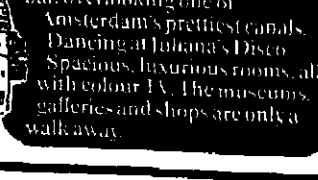 overlooking one of
Amsterdam's prettiest canals.
Dancing at Juliana's Disco
Spacious, luxurious rooms, all
with colour TV. The museums,
galleries and shops are only a
walk away.